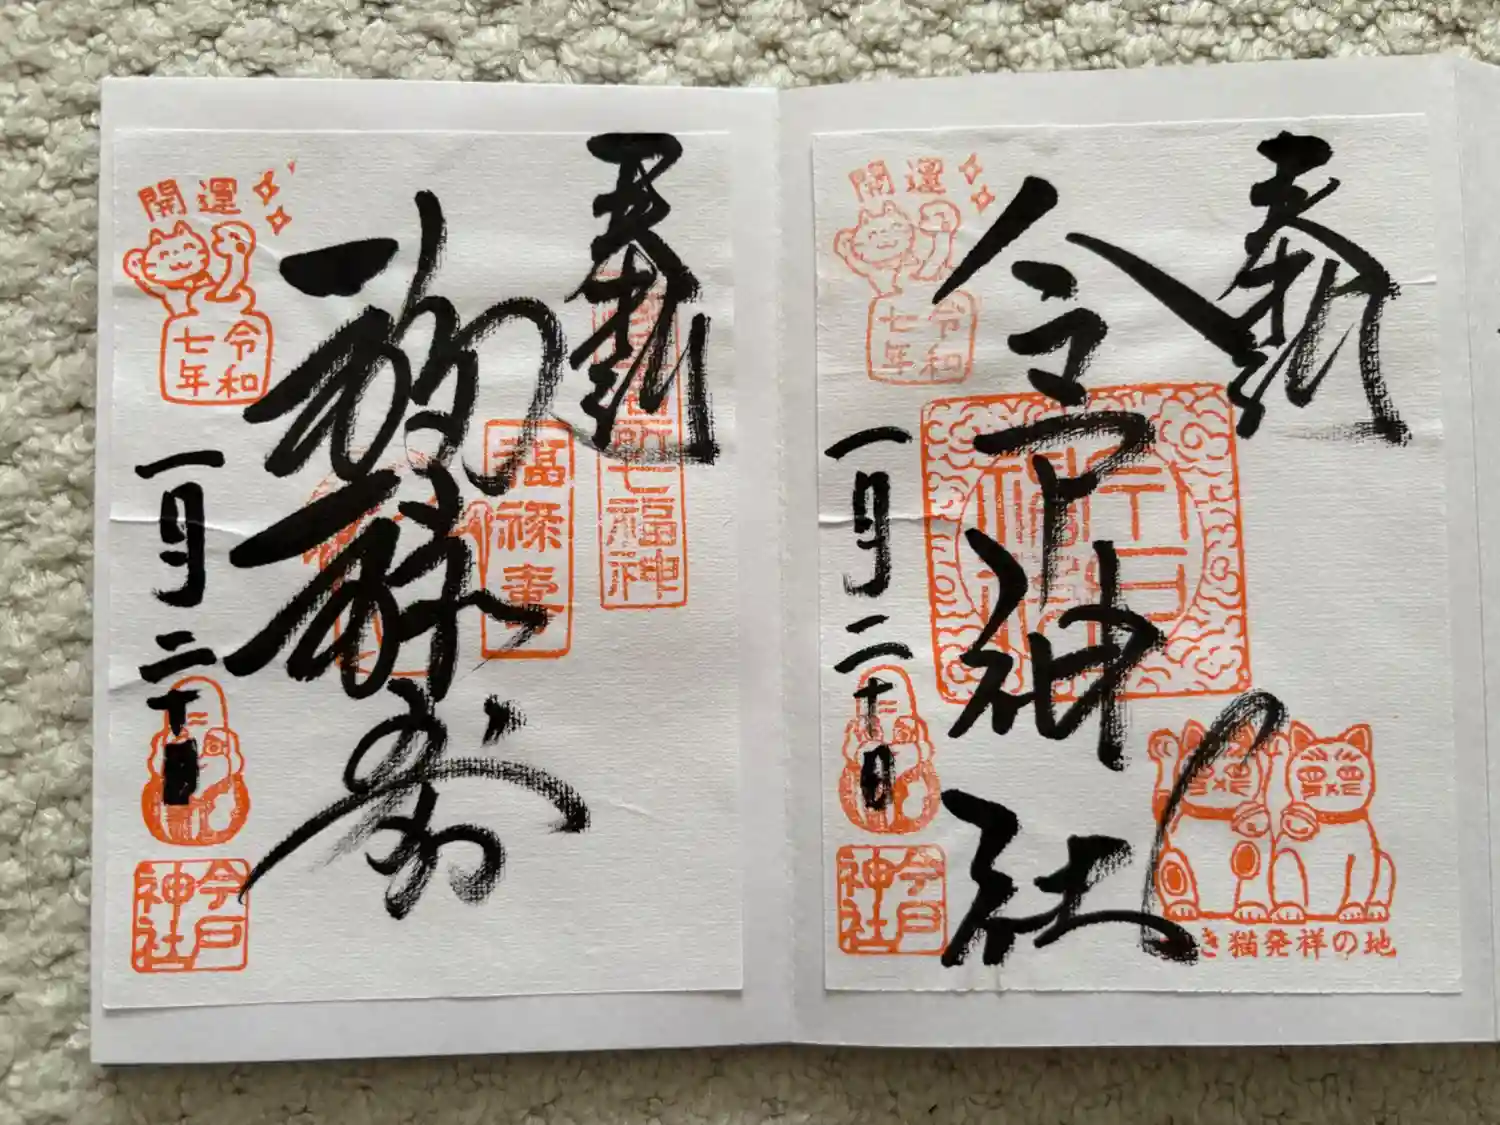 奉拝
今戸神社
開運
令和
七年
一月二十日
今戸
神社
き猫発祥の地
奉拝
七福神
福禄寿
福禄壽
開運
令和
七年
一月二十日
今戸
神社